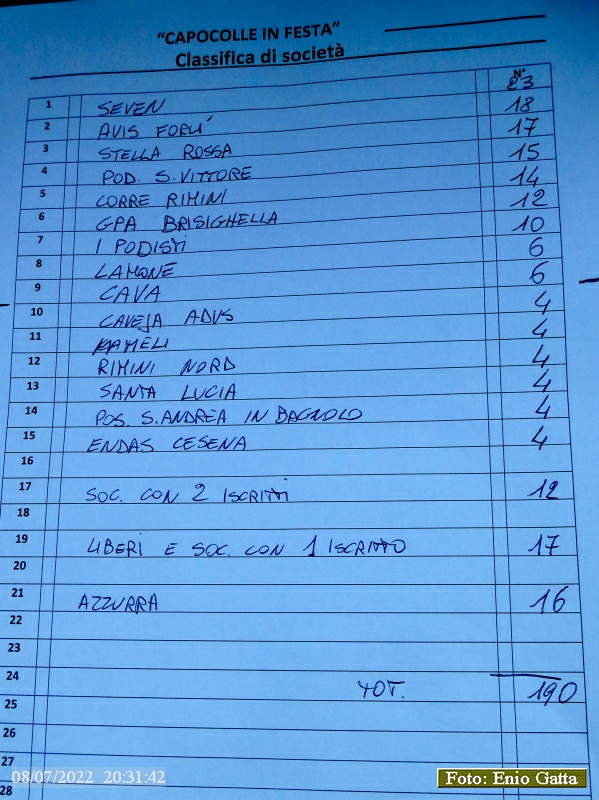 "CAPOCOLLE IN FESTA"
Classifica di società
N°
1 SEVEN 23
2 AVIS FORLI' 18
3 STELLA ROSSA 17
4 POD. S. VITTORE 15
5 CORRE RIMINI 14
6 GPA BRISIGHELLA 12
7 I PODISTI 10
8 LAMONE 6
9 CAVA 6
10 CAVEJA ADVS 4
11 KAMELI 4
12 RIMINI NORD 4
13 SANTA LUCIA 4
14 POS. S. ANDREA IN BAGNOLO 4
15 ENDAS CESENA 4
16
17 SOC. CON 2 ISCRITTI 12
18
19 LIBERI E SOC. CON 1 ISCRITTO 17
20
21 AZZURRA 16
22
23
24 TOT. 190
25
26
27
28
08/07/2022 20:31:42
Foto: Enio Gatta